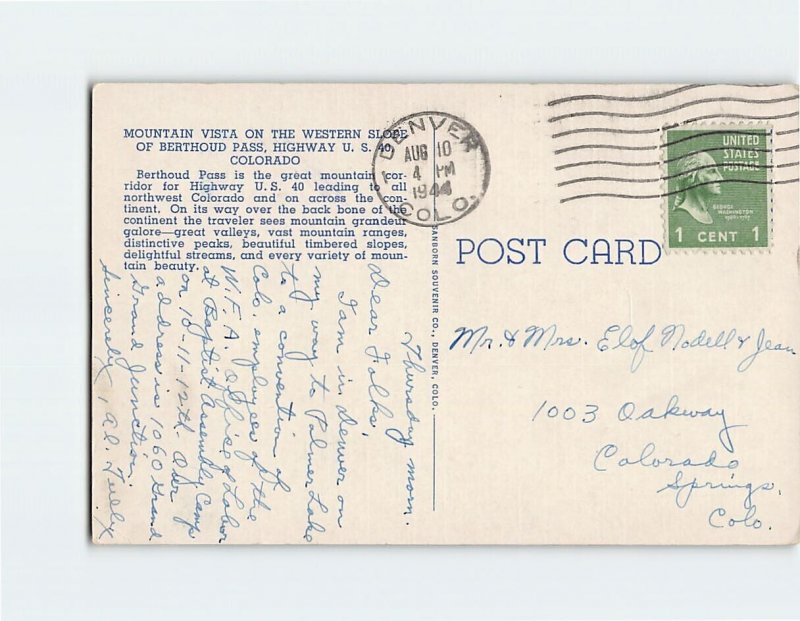 MOUNTAIN VISTA ON THE WESTERN SLOPE
OF BERTHOUD PASS, HIGHWAY U. S. 40
COLORADO
Berthoud Pass is the great mountain cor-
ridor for Highway U.S. 40 leading to all
northwest Colorado and on across the con-
tinent. On its way over the back bone of the
continent the traveler sees mountain grandeur
galore—great valleys, vast mountain ranges,
distinctive peaks, beautiful timbered slopes,
delightful streams, and every variety of moun-
tain beauty.
DENVER
AUG 10
4 PM
1944
COLO.
UNITED
STATES
POSTAGE
GEORGE
WASHINGTON
1 CENT 1
SANBORN SOUVENIR CO., DENVER, COLO.
POST CARD
Thursday morn.
Dear Folks,
I am in Denver on
my way to Palmer Lake
to a convention of
Colo. employees of the
W.F.A. Office of Labor
at Baptist Assembly Camp
on 10-11-12th. Our
address is 1060 Grand
Grand Junction.
Sincerely, Al.
Mr. & Mrs. Elof Nodell & Jean
1003 Oakway
Colorado
Springs,
Colo.